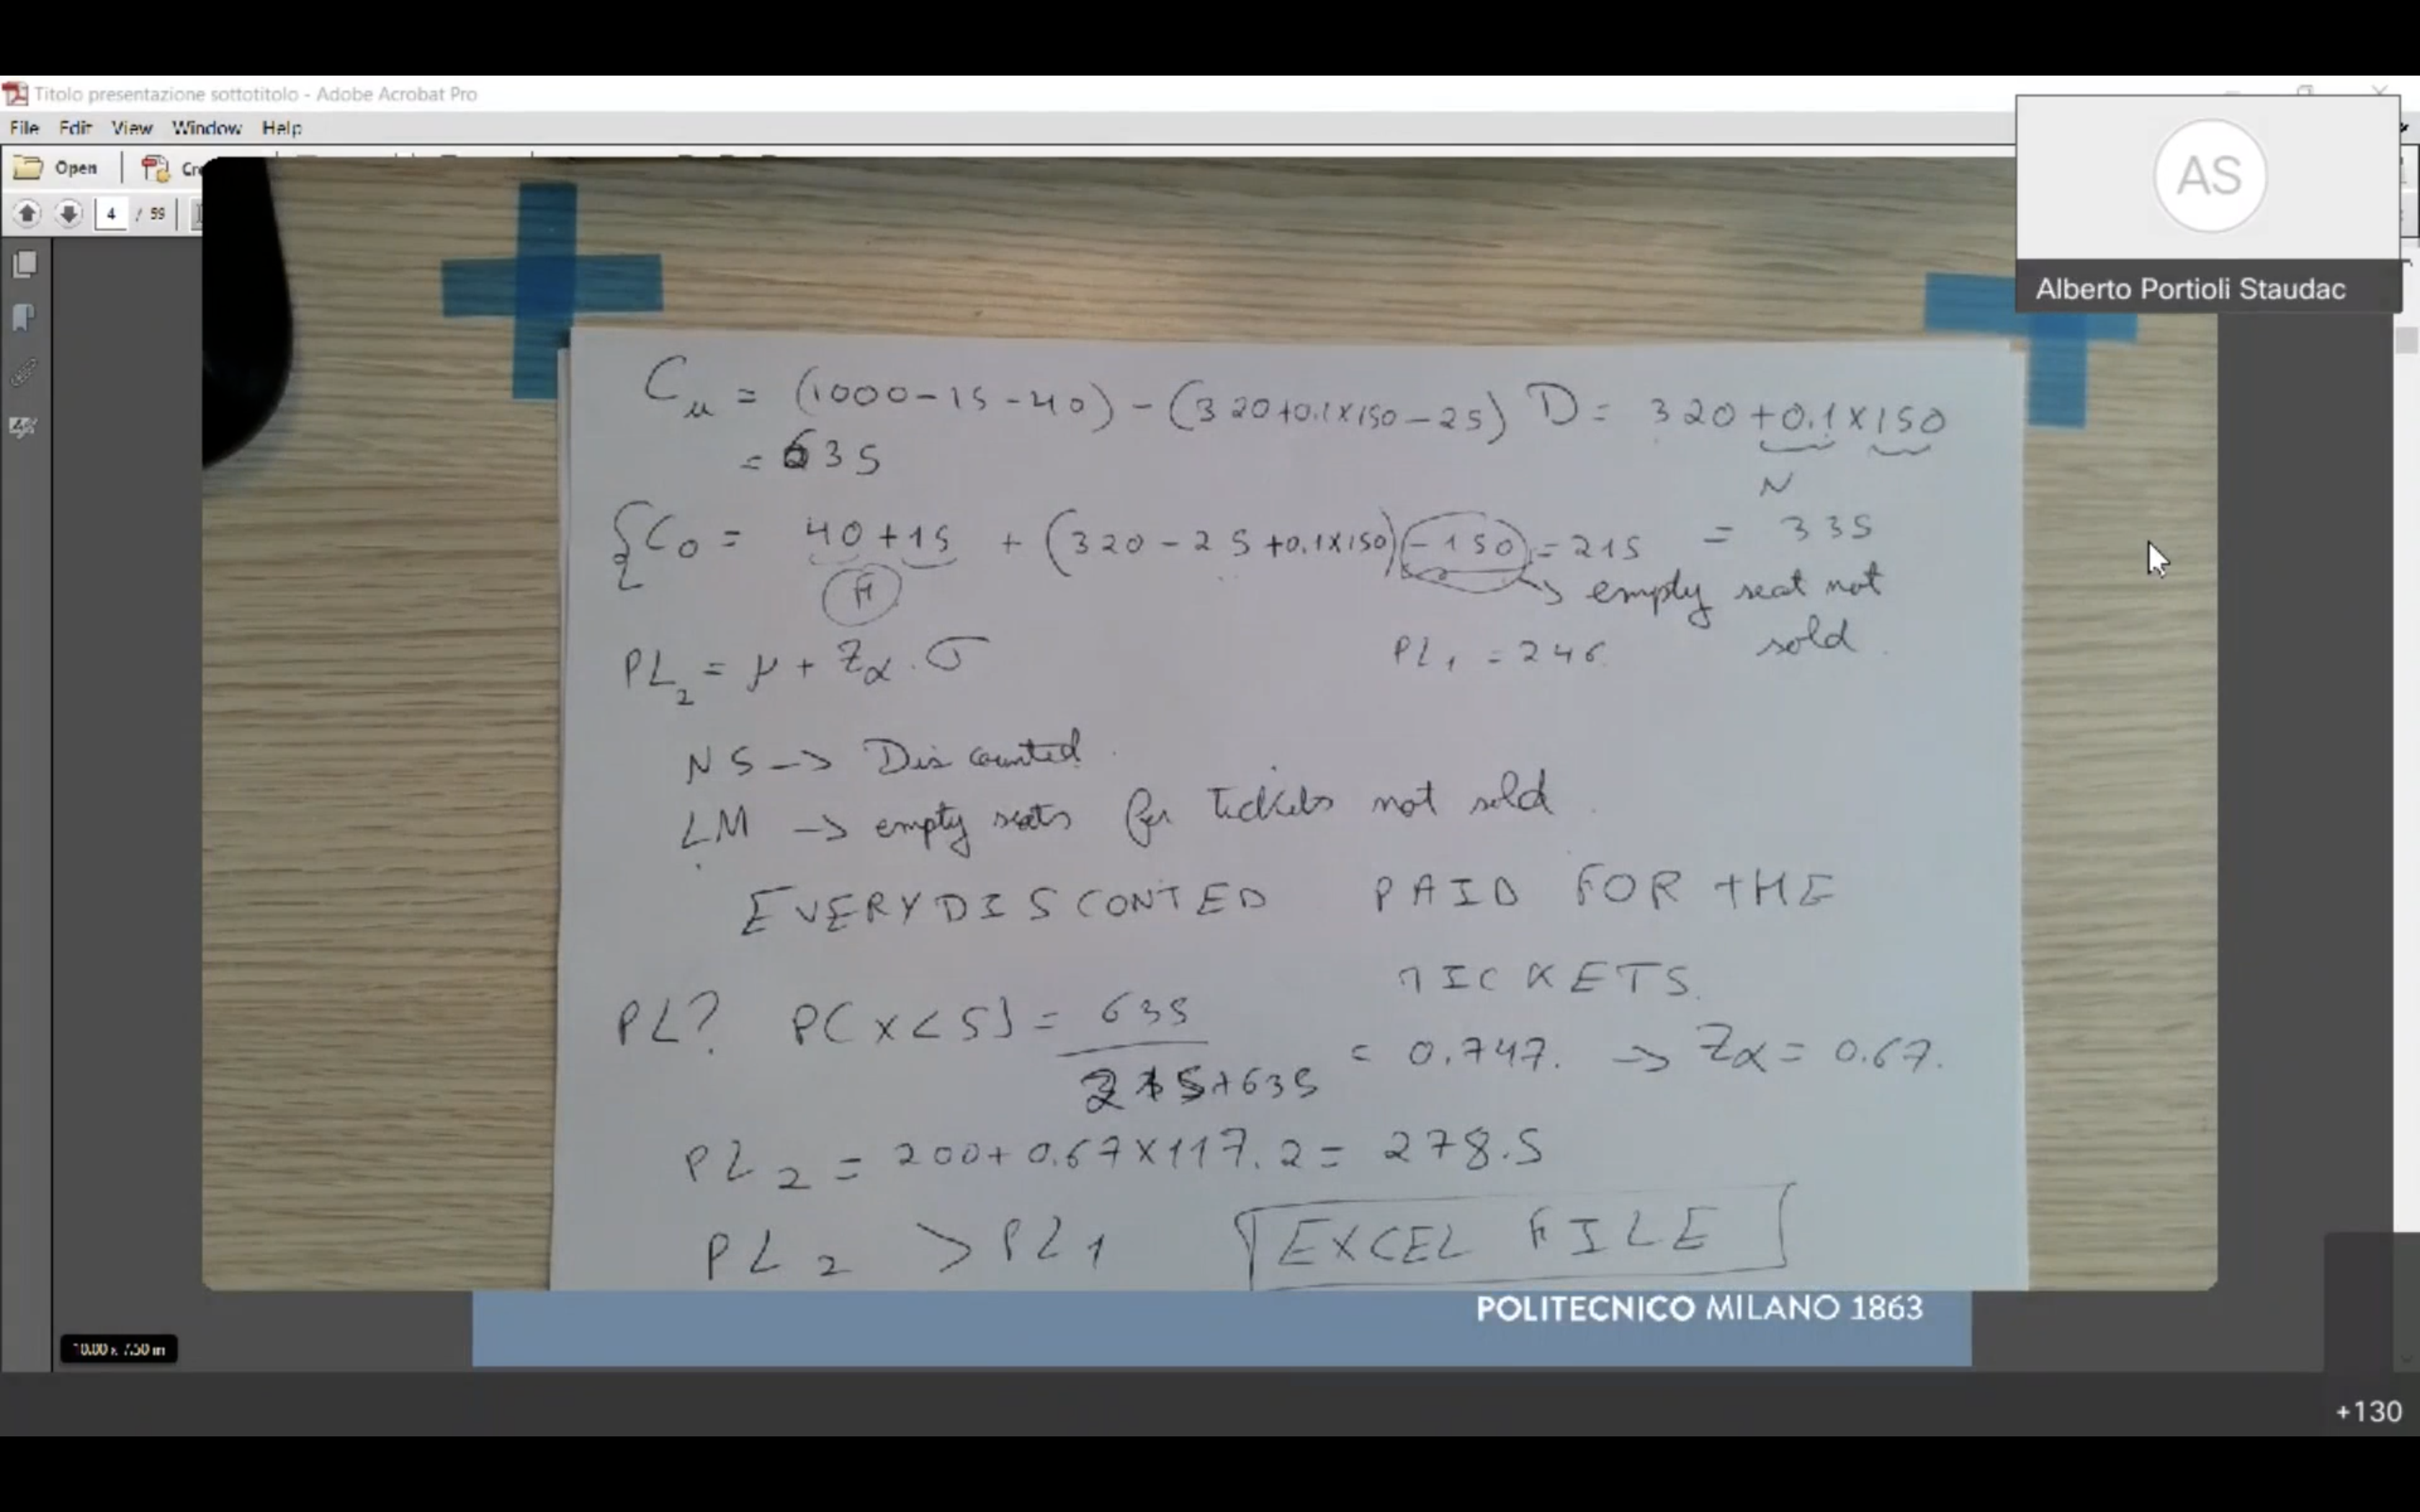 Titolo presentazione sottotitolo - Adobe Acrobat Pro
File Edit View Window Help
Open Cre
4 / 59
AS
Alberto Portioli Staudac
Cu = (1000-15-40) - (320+0.1x150-25) D = 320+0.1x150
= 635
N
{Co = 40+15 + (320-25+0.1x150)-150 = 215 = 335
A
→ empty seat not
sold.
PL2 = μ + Zα . σ PL1 = 246
NS → Discounted.
LM → empty seats for tickets not sold.
EVERY DISCONTED PAID FOR THE
TICKETS.
PL? P(x<S) = 635 / 215+635 = 0.747. → Zα = 0.67.
PL2 = 200+0.67x117.2 = 278.5
PL2 > PL1 EXCEL FILE
POLITECNICO MILANO 1863
10.00 x 7.50 in
+130